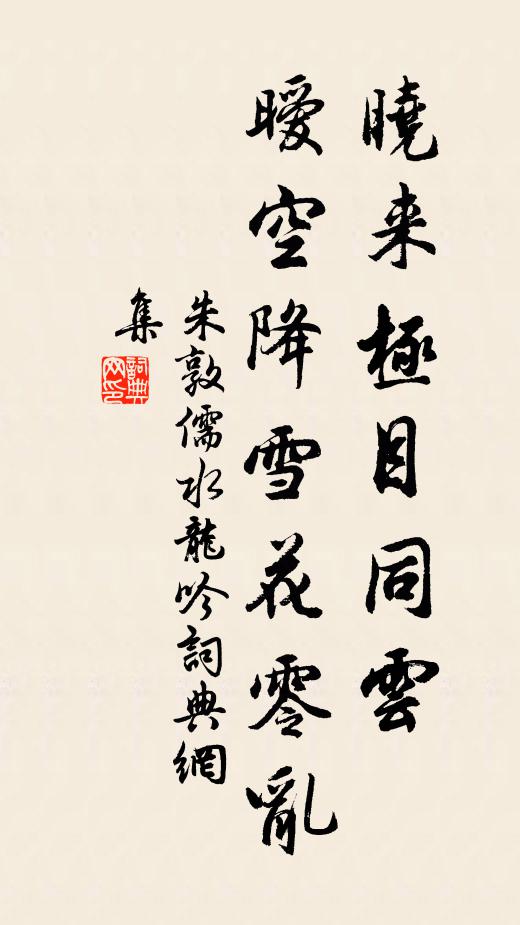 曉来極目同雲
曖空降雪花零亂
朱敦儒水龍吟詞典網
集
詞典
网印